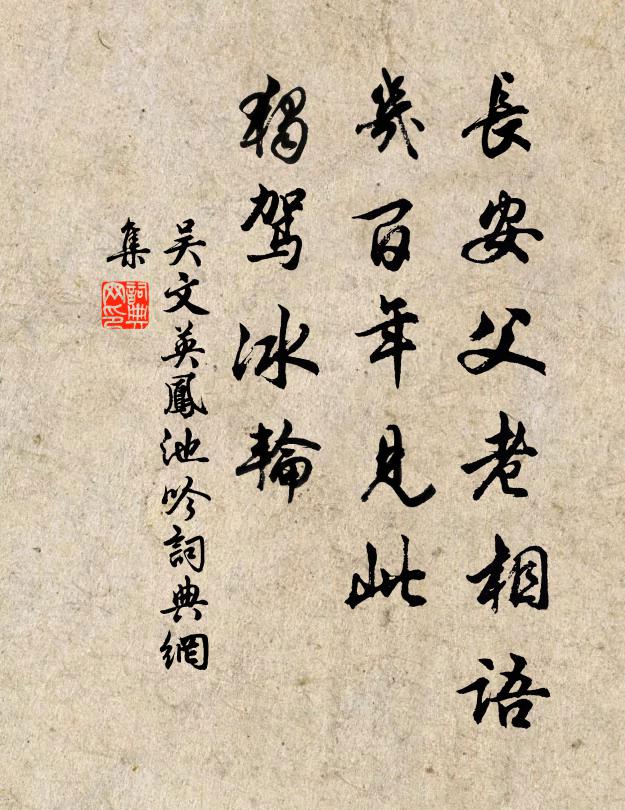 長安父老相語
幾百年見此
獨駕冰輪
吴文英鳳池吟詞典網
集
詞典
网印